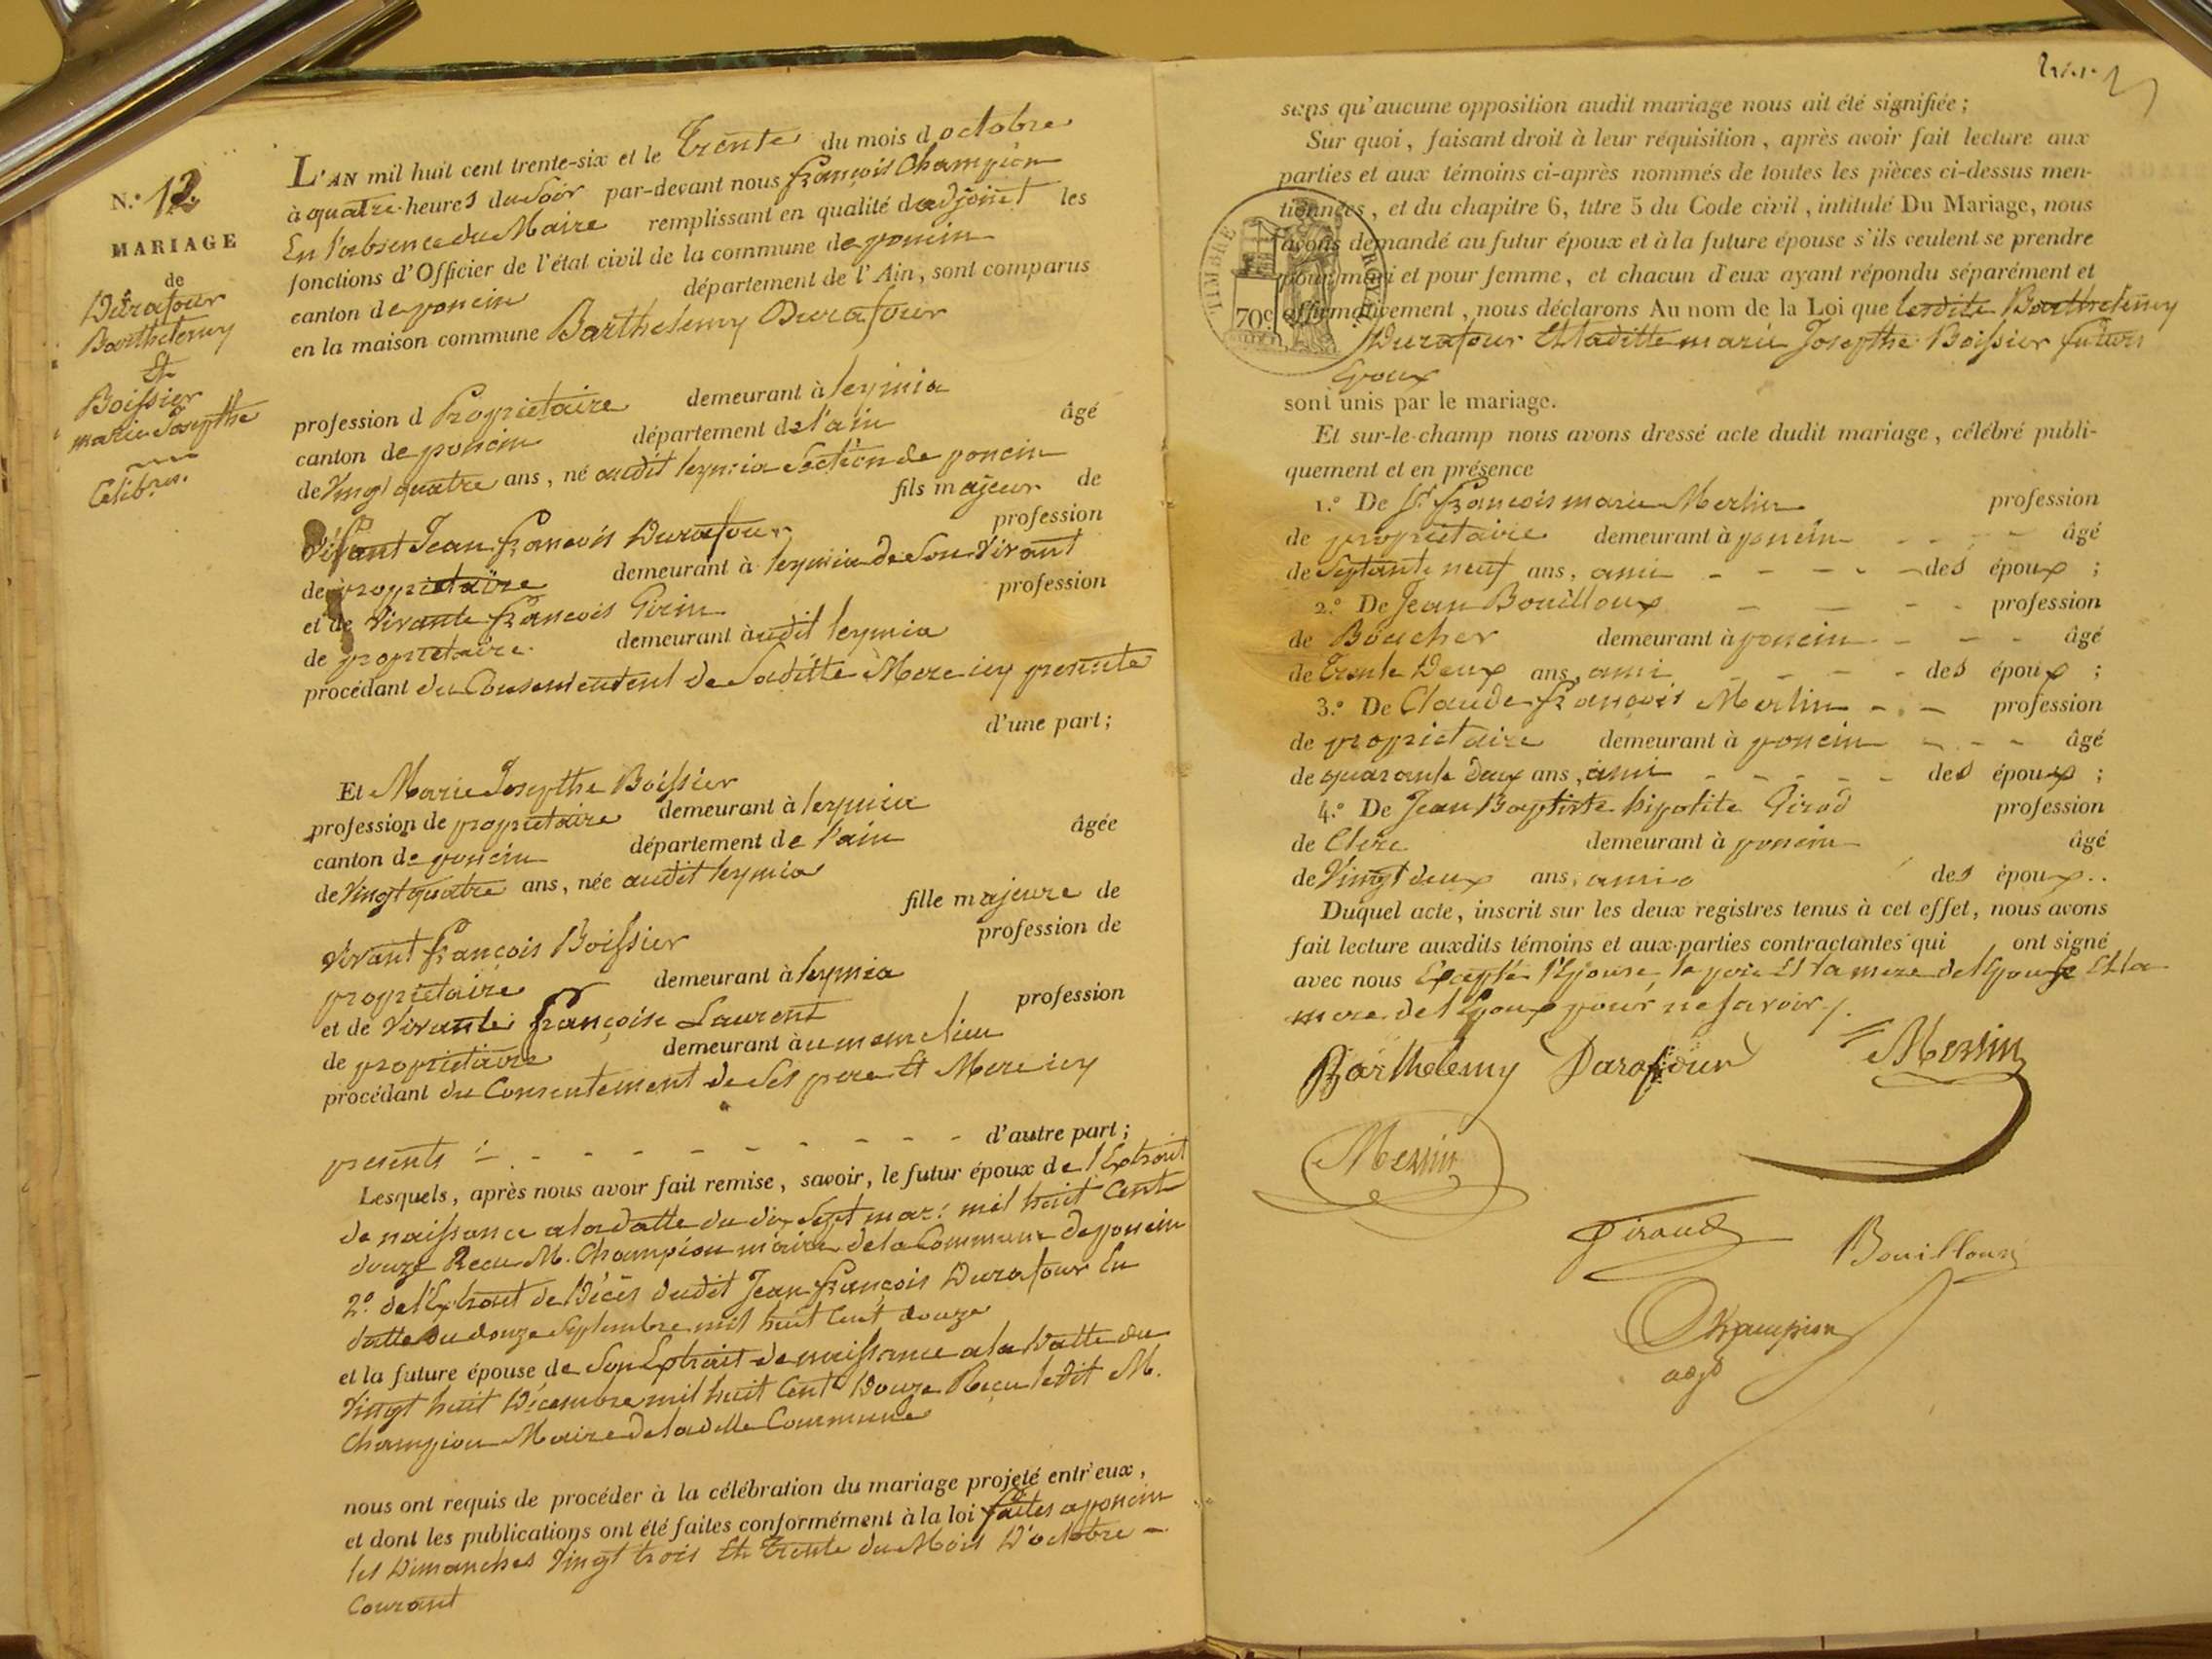 N.° 12
MARIAGE
de
Durafour
Barthelemy
Et
Boissier
marie Josepthe
Celib.res
L'AN mil huit cent trente-six et le Trente du mois d'octobre
à quatre heures du Soir par-devant nous françois Champion
En l'absence du Maire remplissant en qualité d'adjoint les
fonctions d'Officier de l'état civil de la commune de poncin
canton de poncin département de l'Ain, sont comparus
en la maison commune Barthelemy Durafour
profession d Propriétaire demeurant à leymia
canton de poncin département de l'ain âgé
de Vingt quatre ans, né audit leymia Section de poncin
fils majeur de
Jean françois Durafour profession
de propriétaire demeurant à leymia de Son Vivant
et de Vivante françois Girin profession
de propriétaire demeurant audit leymia
procédant du Consentement de Saditte Mere icy presente
d'une part;
Et Marie Josepthe Boissier
profession de propriétaire demeurant à leymia
canton de poncin département de l'ain âgée
de Vingt quatre ans, née audit leymia
fille majeure de
Vivant françois Boissier profession de
propriétaire demeurant à leymia
et de Vivante françoise Laurent profession
de propriétaire demeurant au meme lieu
procédant du Consentement de Ses pere Et Mere icy
presents - - - - - - - - - d'autre part;
Lesquels, après nous avoir fait remise, savoir, le futur époux de l'Extrait
de naissance a la datte du dix Sept mars mil huit Cent
douze Recu M. Champion maire de la Commune de poncin
2.° de l'Extrait de Décès dudit Jean françois Durafour En
datte du douze Septembre mil huit Cent douze
et la future épouse de Son Extrait de naissance a la Datte du
Vingt huit Décembre mil huit Cent Douze Reçu ledit M.
Champion Maire de laditte Commune
nous ont requis de procéder à la célébration du mariage projeté entr'eux,
et dont les publications ont été faites conformément à la loi faites a poncin
les Dimanches Vingt trois Et Trente du Mois D'octobre -
Courant
sans qu'aucune opposition audit mariage nous ait été signifiée;
Sur quoi, faisant droit à leur réquisition, après avoir fait lecture aux
parties et aux témoins ci-après nommés de toutes les pièces ci-dessus men-
tionnées, et du chapitre 6, titre 5 du Code civil, intitulé Du Mariage, nous
avons demandé au futur époux et à la future épouse s'ils veulent se prendre
pour mari et pour femme, et chacun d'eux ayant répondu séparément et
affirmativement, nous déclarons Au nom de la Loi que Barthelemy
Durafour Et laditte marie Josepthe Boissier futurs
Epoux
TIMBRE ROYAL
70c
sont unis par le mariage.
Et sur-le-champ nous avons dressé acte dudit mariage, célébré publi-
quement et en présence
1.° De Sr. françois marie Merlin profession
de propriétaire demeurant à poncin - - - - âgé
de Septante neuf ans, ami - - - - - des époux;
2.° De Jean Bouilloux - - - - profession
de Boucher demeurant à poncin - - - âgé
de Trente Deux ans, ami - - - - des époux;
3.° De Claude françois Merlin - - - profession
de propriétaire demeurant à poncin - - - âgé
de quarante deux ans, ami - - - - - des époux;
4.° De Jean Baptiste hipolite Girod profession
de Clerc demeurant à poncin âgé
de Vingt deux ans, ami des époux..
Duquel acte, inscrit sur les deux registres tenus à cet effet, nous avons
fait lecture auxdits témoins et aux parties contractantes qui ont signé
avec nous Excepté l'Epouse, le pere Et la mere de l'Epouse Et la
mere de l'Epoux pour ne Savoir.
Barthelemy Darafour Merlin
Merlin
Giraud Bouilloux
Champion
adjt